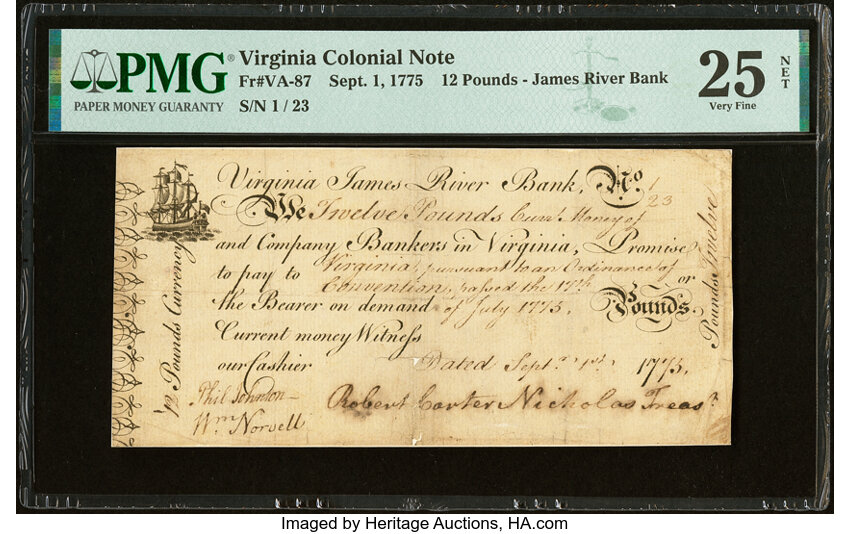 PMG®
PAPER MONEY GUARANTY
Virginia Colonial Note
Fr#VA-87 Sept. 1, 1775 12 Pounds - James River Bank
S/N 1 / 23
25
NET
Very Fine
Virginia James River Bank, No. 1
23
We Twelve Pounds Curr.t Money of
and Company Bankers in Virginia, Promise
to pay to Virginia, pursuant to an Ordinance of
Convention, passed the 17th or
the Bearer on demand of July 1775. Pounds
Current money Witness
our Cashier Dated Sept.r 1st 1775.
Phil Johnson
Wm Norvell
Robert Carter Nicholas Treas.r
12 Pounds Currency
Pounds Twelve
Imaged by Heritage Auctions, HA.com